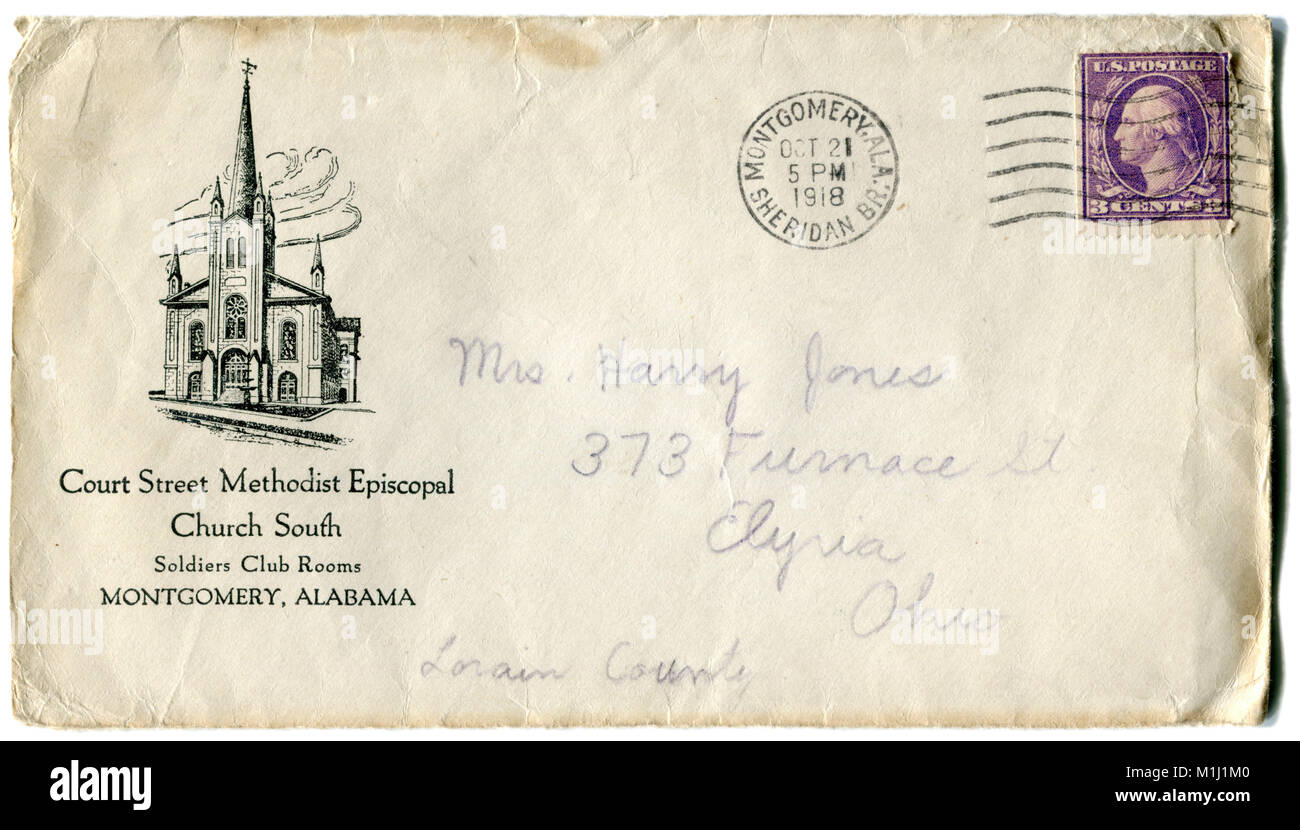 Court Street Methodist Episcopal
Church South
Soldiers Club Rooms
MONTGOMERY, ALABAMA
MONTGOMERY, ALA.
OCT 21
5 PM
1918
SHERIDAN BR.
U.S. POSTAGE
3 CENTS 3
Mrs. Harry Jones
373 Furnace St.
Elyria
Ohio
Lorain County
alamy
a
alamy
a
alamy
a
alamy
Image ID: M1J1M0
www.alamy.com